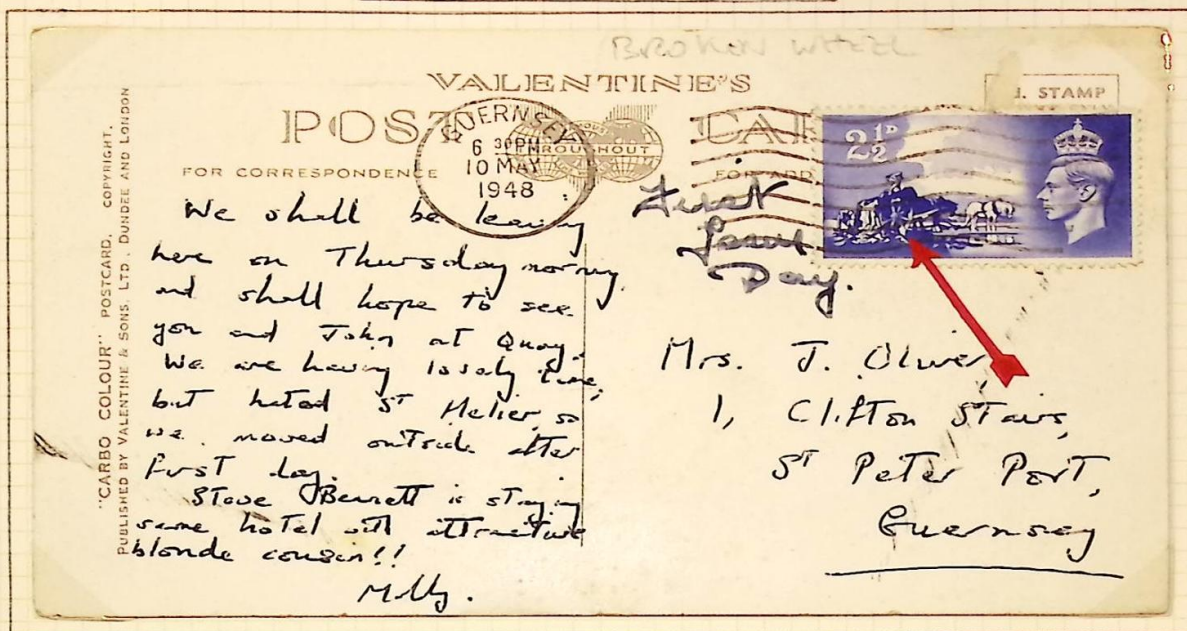 BROKEN WHEEL
VALENTINE'S
POST CAR
STAMP
FOR CORRESPONDENCE
FOR ADD
THROUGHOUT
GUERNSEY
6 30 PM
10 MAY
1948
2½D
"CARBO COLOUR" POSTCARD. COPYRIGHT.
PUBLISHED BY VALENTINE & SONS, LTD., DUNDEE AND LONDON
First
Issue
Day.
We shall be leaving
here on Thursday morning
and shall hope to see
you and John at Quay.
We are having lovely time,
but hated St Helier, so
we moved outside after
first day.
Steve Bennett is staying
same hotel with attractive
blonde cousin!!
Milly.
Mrs. J. Oliver,
1, Clifton Stairs,
St Peter Port,
Guernsey